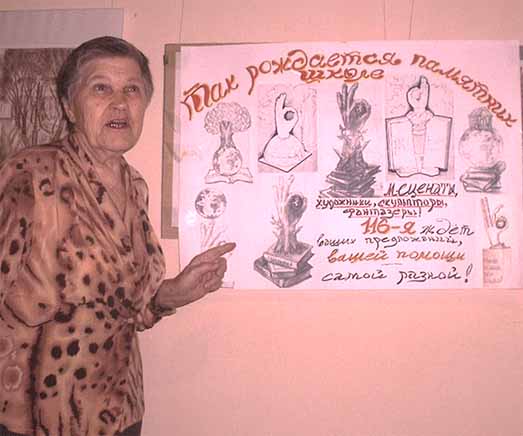 Так рождается памятник
школе
Меценаты,
художники, скульпторы,
фантазеры!
116-я ждет
ваших предложений,
вашей помощи
самой разной!